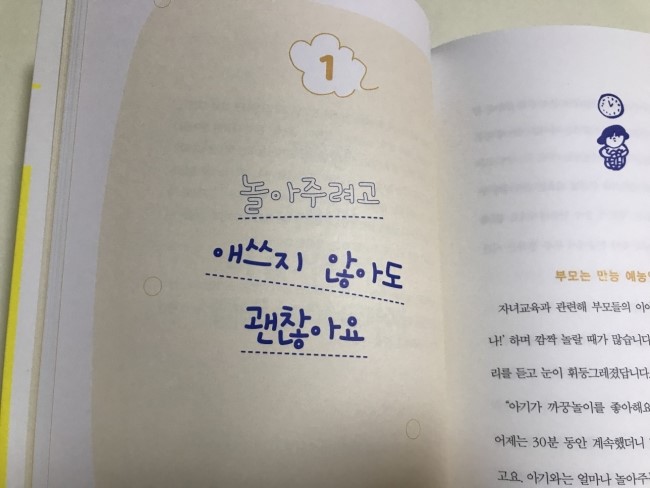 1
놀아주려고
애쓰지 않아도
괜찮아요
부모는 만능 예능
자녀교육과 관련해 부모들의 이야
나!' 하며 깜짝 놀랄 때가 많습니다
리를 듣고 눈이 휘둥그레졌답니다.
"아기가 까꿍놀이를 좋아해요
어제는 30분 동안 계속했더니
고요. 아기와는 얼마나 놀아주